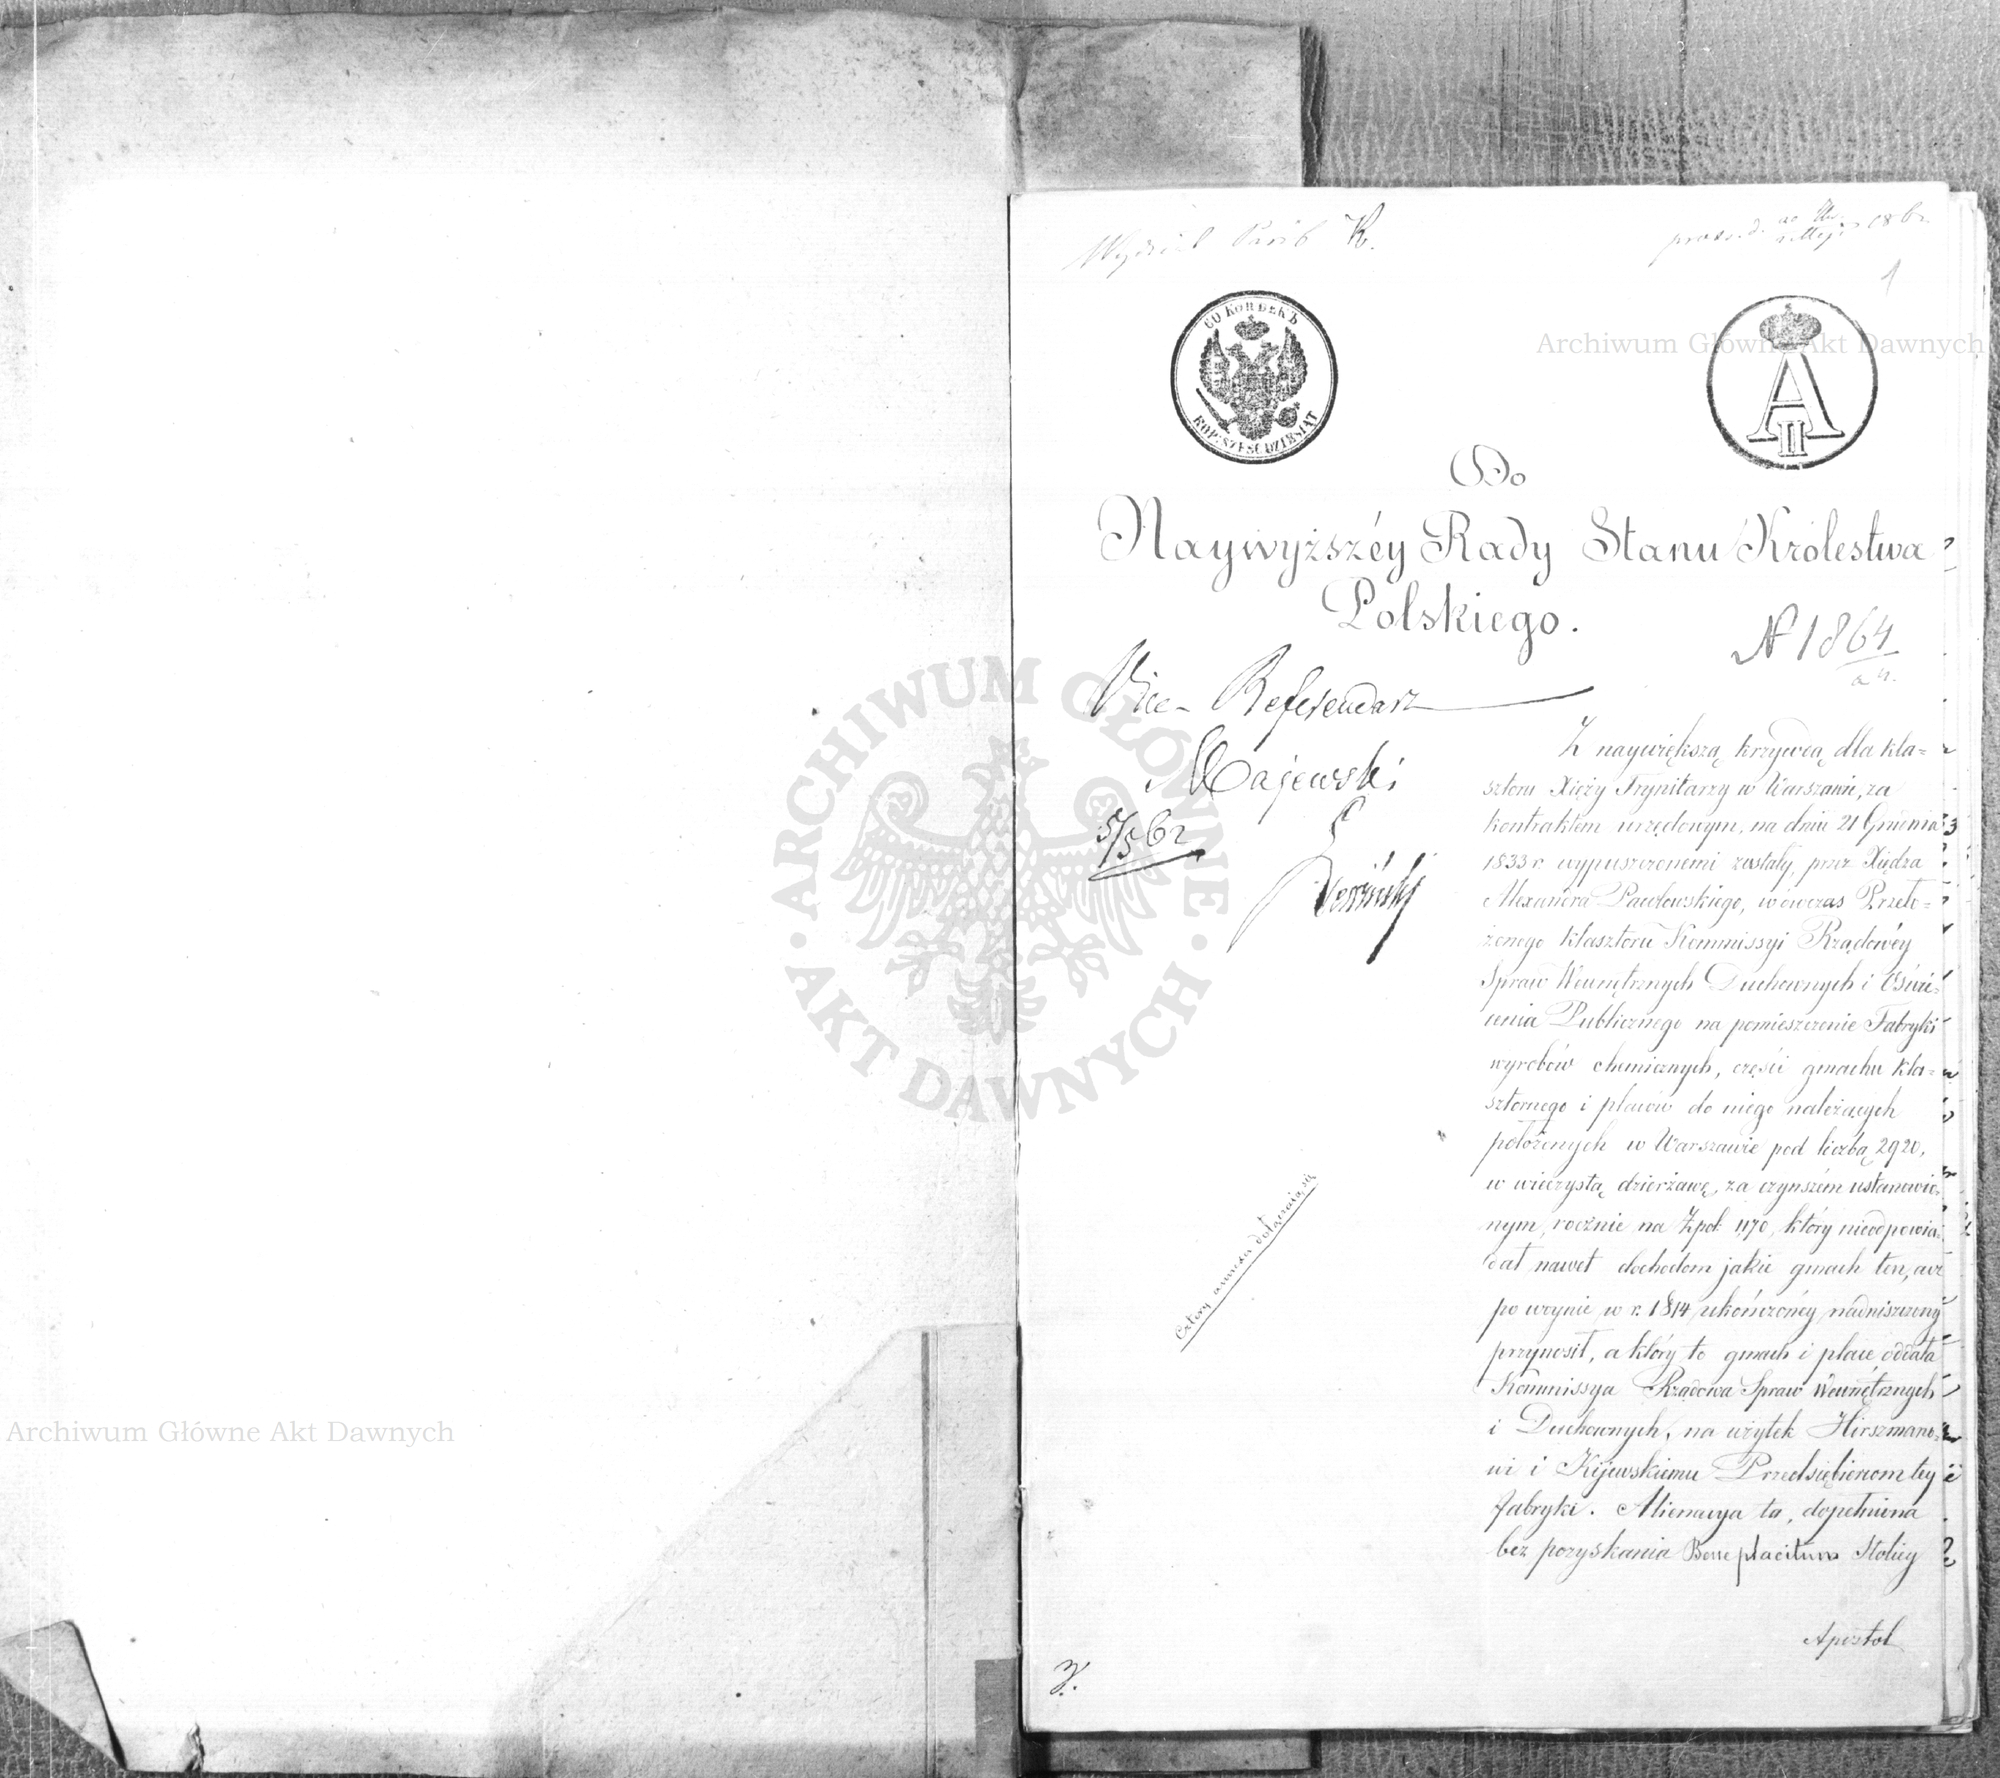 Wydział K.
186
1
60 КОПѢЕКЪ
KOP: SZESĆDZIESIĄT
A II
Do
Naywyższéy Rady Stanu Królestwa
Polskiego.
N 1864
Vice-Referendarz
Majewski
5/5 62
Z naywiększą krzywdą dla kla=
sztoru Xięży Trynitarzy w Warszawie, za
kontraktem urzędowym, na dniu 21 Grudnia
1833 r wypuszczonemi zostały, przez Xiędza
Alexandra Pawłowskiego, wówczas Przeło=
żonego klasztoru Kommissyi Rządowéy
Spraw Wewnętrznych Duchownych i Oświe=
cenia Publicznego na pomieszczenie Fabryki
wyrobów chemicznych, części gmachu kla=
sztornego i placów do niego należących
położonych w Warszawie pod liczbą 2920,
w wieczystą dzierżawę, za czynszem ustanowio=
nym, rocznie na Zpol. 1170, który nieodpowia=
dał nawet dochodom jakie gmach ten, acz
po woynie w r. 1814 ukończonéy nadniszczony
przynosił, a który to gmach i place oddała
Kommissya Rządowa Spraw Wewnętrznych
i Duchownych, na użytek Hirszmano=
wi i Kijewskiemu Przedsiębiorcom tey
fabryki. Alienacya ta, dopełniona
bez pozyskania Beneplacitum Stolicy
Apostol
Cztery annexa dołączają się
Archiwum Główne Akt Dawnych
ARCHIWUM GŁÓWNE · AKT DAWNYCH ·
Archiwum Główne Akt Dawnych